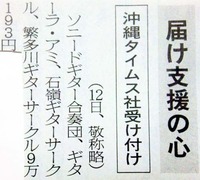 届け支援の心
沖縄タイムス社受け付け
(12日、敬称略)
ソニードギター合奏団、ギタ
ーラ・アミ、石嶺ギターサーク
ル、繁多川ギターサークル9万
193円